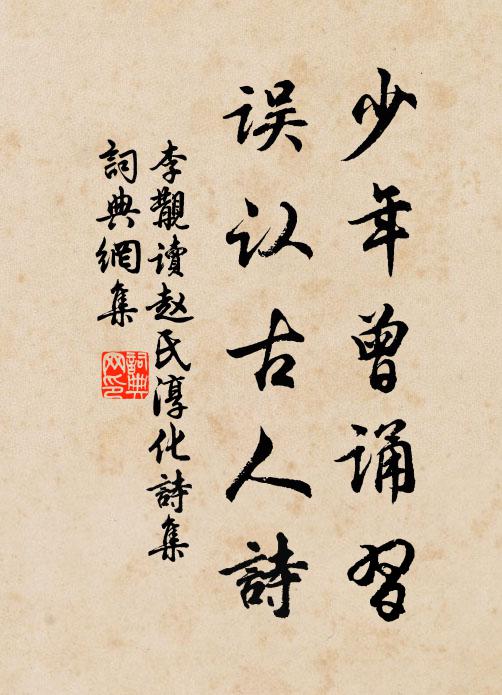 少年曾诵習
误认古人詩
李觏读赵氏淳化詩集
詞典網集
詞典网印